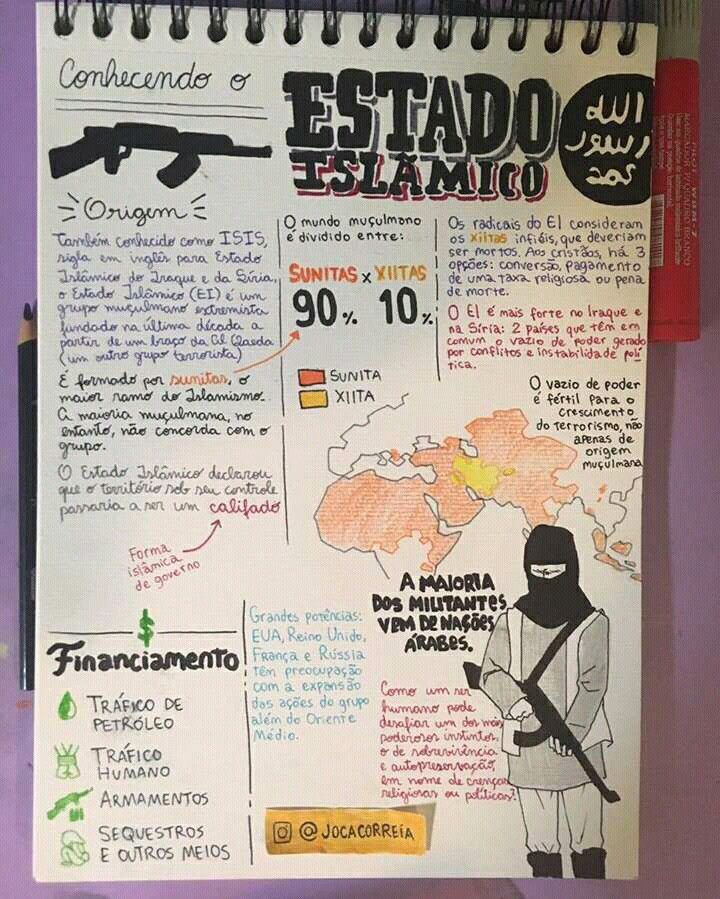 Conhecendo o
ESTADO
ISLÂMICO
الله
رسور
محمد
Origem
Também conhecido como ISIS,
sigla em inglês para Estado
Islâmico do Iraque e da Síria,
o Estado Islâmico (EI) é um
grupo muçulmano extremista
fundado na última década a
partir de um braço da Al Qaeda
(um outro grupo terrorista)
É formado por sunitas, o
maior ramo do Islamismo.
A maioria muçulmana, no
entanto, não concorda com o
grupo.
O Estado Islâmico declarou
que o território sob seu controle
passaria a ser um califado
Forma
islâmica
de governo
O mundo muçulmano
é dividido entre:
SUNITAS x XIITAS
90% 10%
SUNITA
XIITA
Os radicais do EI consideram
os xiitas infiéis, que deveriam
ser mortos. Aos cristãos, há 3
opções: conversão, pagamento
de uma taxa religiosa ou pena
de morte.
O EI é mais forte no Iraque e
na Síria: 2 países que têm em
comum o vazio de poder gerado
por conflitos e instabilidade polí
tica.
O vazio de poder
é fértil para o
crescimento
do terrorismo, não
apenas de
origem
muçulmana
A MAIORIA
DOS MILITANTES
VEM DE NAÇÕES
ÁRABES.
$
Financiamento
TRÁFICO DE
PETRÓLEO
TRÁFICO
HUMANO
ARMAMENTOS
SEQUESTROS
E OUTROS MEIOS
Grandes potências:
EUA, Reino Unido,
França e Rússia
têm preocupação
com a expansão
das ações do grupo
além do Oriente
Médio.
Como um ser
humano pode
desafiar um dos mais
poderosos instintos,
o de sobrevivência
e autopreservação,
em nome de crenças
religiosas ou políticas?
@JOCACORREIA
MARCADOR P/ QUADRO BRANCO